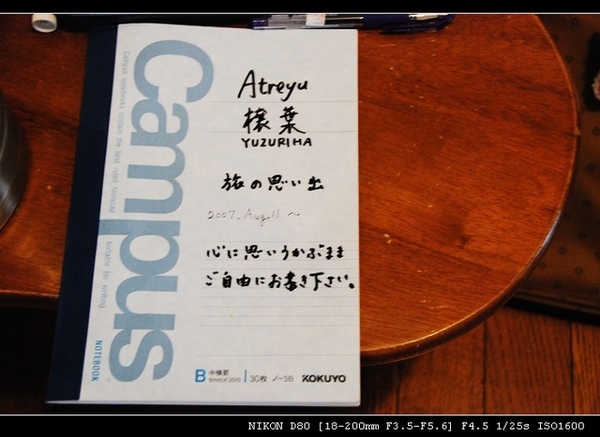 Campus
Campus notebooks contain the best ruled foolscap
suitable for writing
NOTEBOOK
Atreyu
穣葉
YUZURIHA
旅の思い出
2007. Aug. 11 〜
心に思いうかぶまま
ご自由にお書き下さい。
B 中横罫
30枚 ノ-3B
KOKUYO
NIKON D80 [18-200mm F3.5-F5.6] F4.5 1/25s ISO1600